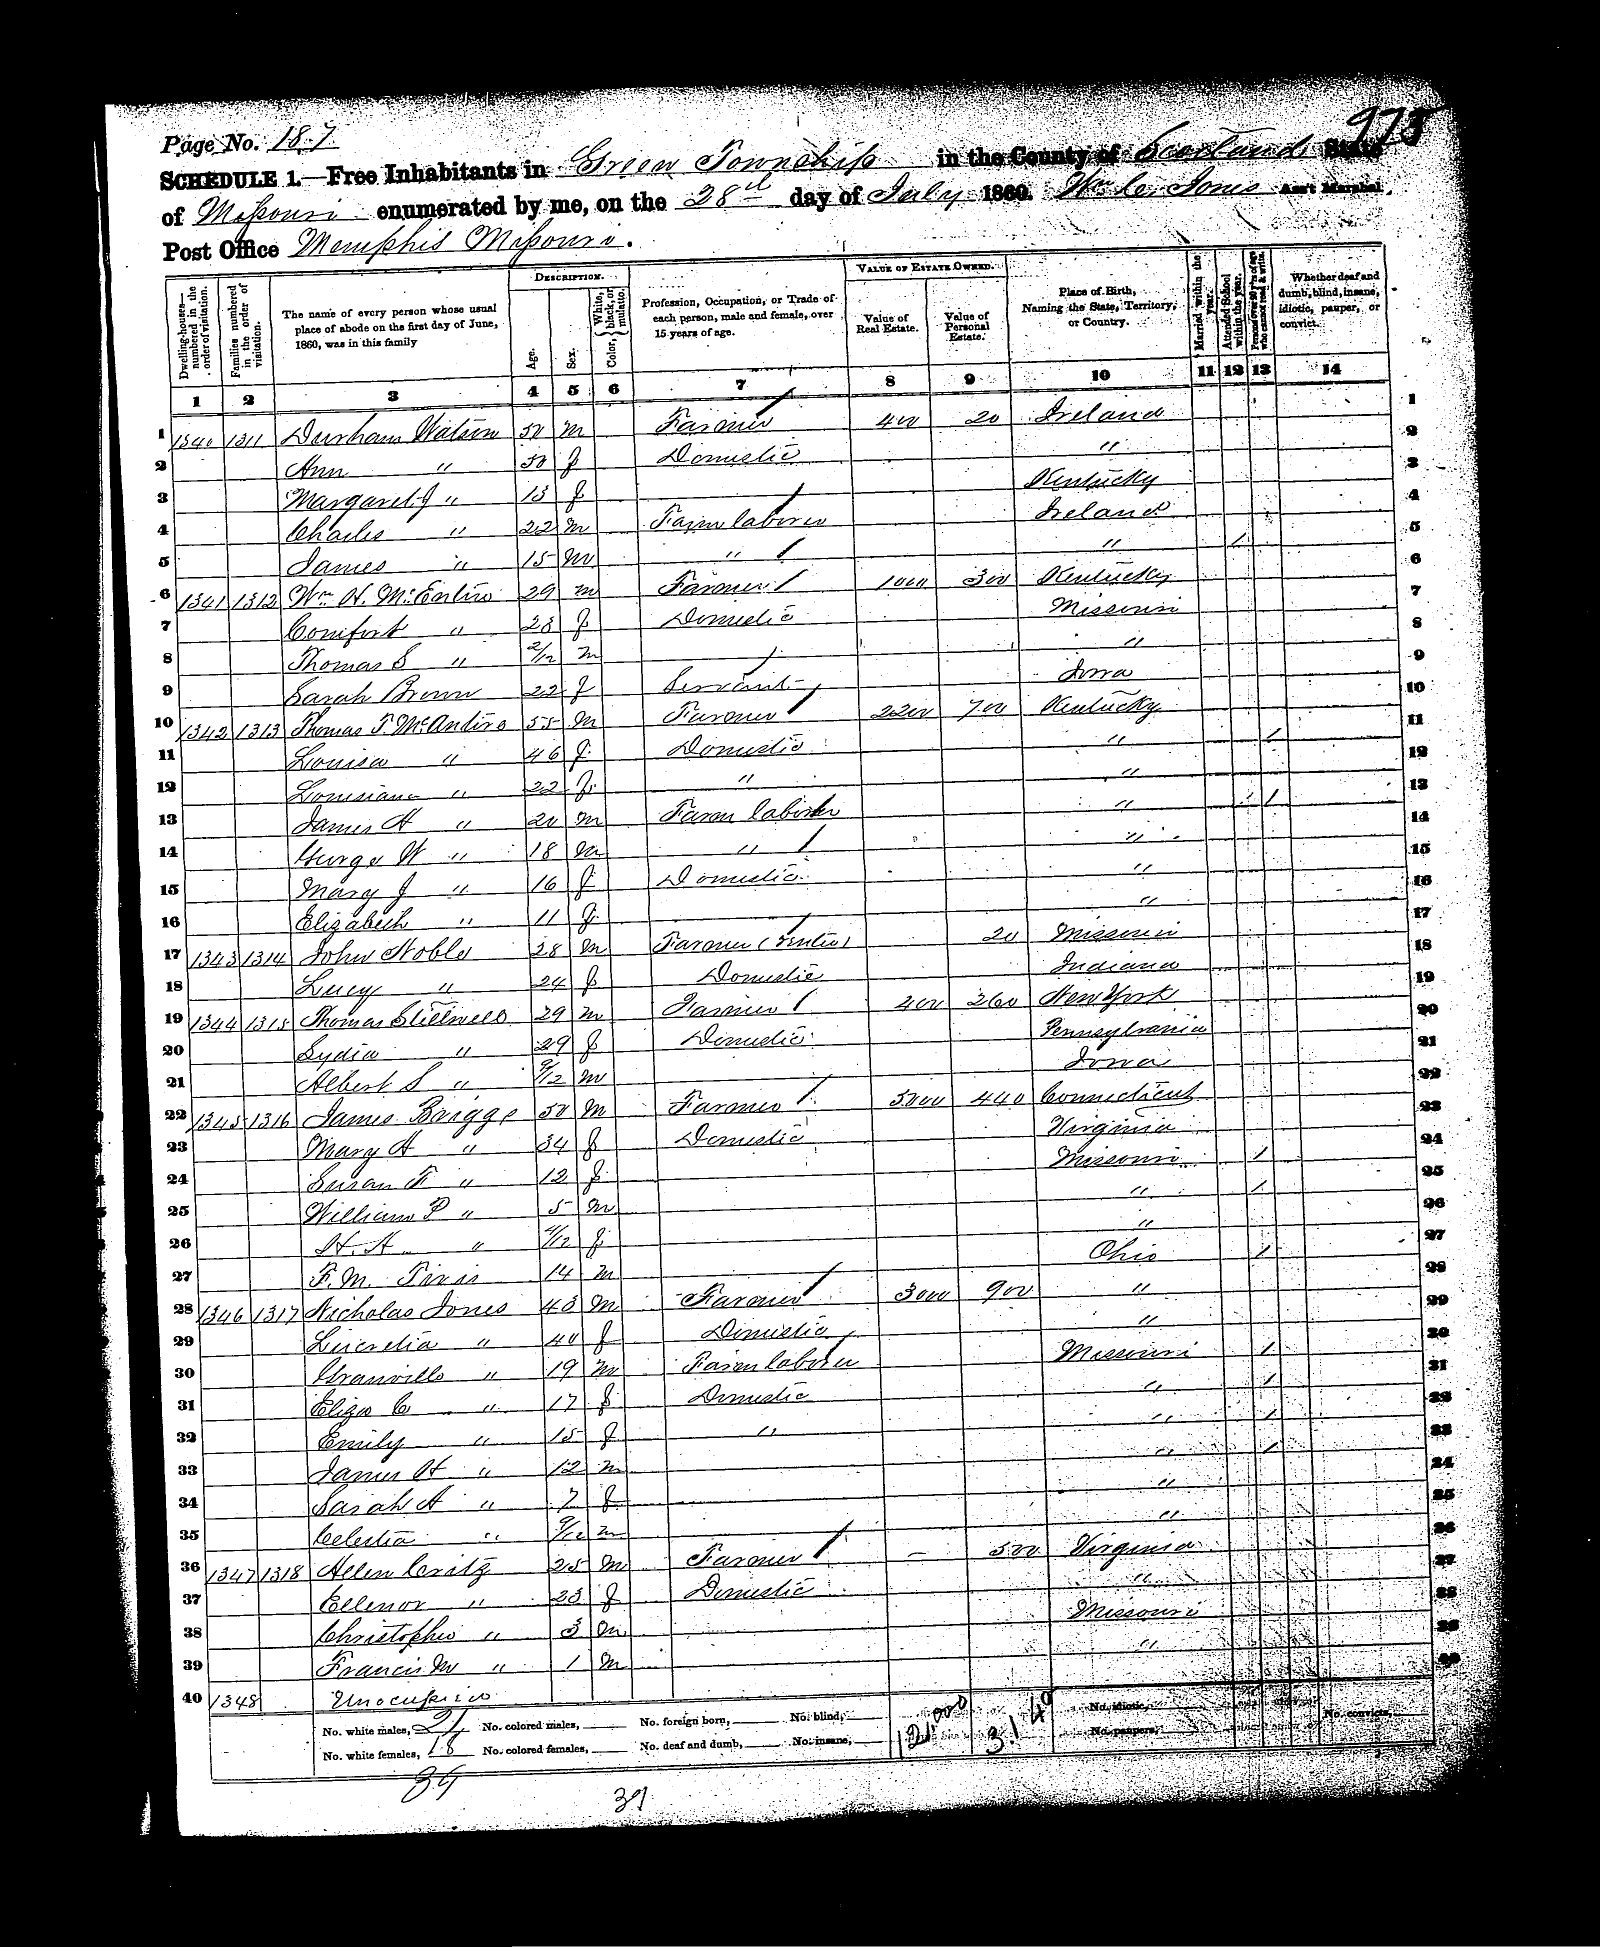 975
Page No. 187
SCHEDULE 1.—Free Inhabitants in Green Township in the County of Scotland State
of Missouri enumerated by me, on the 28th day of July 1860. Wm C. Jones Ass't Marshal.
Post Office Memphis Missouri.
Dwelling-houses—numbered in the order of visitation. Families numbered in the order of visitation. The name of every person whose usual place of abode on the first day of June, 1860, was in this family DESCRIPTION. Age. Sex. Color, White, black, or mulatto. Profession, Occupation, or Trade of each person, male and female, over 15 years of age. VALUE OF ESTATE OWNED. Value of Real Estate. Value of Personal Estate. Place of Birth, Naming the State, Territory, or Country. Married within the year. Attended School within the year. Persons over 20 y'rs of age who cannot read & write. Whether deaf and dumb, blind, insane, idiotic, pauper, or convict.
1 2 3 4 5 6 7 8 9 10 11 12 13 14
1 1340 1311 Durham Watson 50 m Farmer 400 20 Ireland 1
2 Ann " 50 f Domestic " 2
3 Margaret J " 13 f Kentucky 3
4 Charles " 22 m Farm laborer / Ireland 4
5 James " 15 m " / " / 5
6 1341 1312 Wm H. McEntire 29 m Farmer / 1000 300 Kentucky 6
7 Comfort " 23 f Domestic Missouri 7
8 Thomas S " 2/12 m " 8
9 Sarah Brown 22 f Servant Iowa 9
10 1342 1313 Thomas F. McAntire 55 m Farmer / 2200 700 Kentucky 10
11 Louisa " 46 f Domestic " / 11
12 Louisiana " 22 f " " 12
13 James H " 20 m Farm laborer " / 13
14 George W " 18 m " / " 14
15 Mary J " 16 f Domestic " 15
16 Elizabeth " 11 f " 16
17 1343 1314 John Noble 28 m Farmer (renter) 20 Missouri 17
18 Lucy " 24 f Domestic Indiana 18
19 1344 1315 Thomas Stillwell 29 m Farmer / 400 260 New York 19
20 Lydia " 29 f Domestic Pennsylvania 20
21 Albert S " 9/12 m Iowa 21
22 1345 1316 James Briggs 50 m Farmer / 5000 440 Connecticut 22
23 Mary A " 34 f Domestic Virginia 23
24 Susan F " 12 f Missouri / 24
25 William P " 5 m " / 25
26 H. A " /12 f " 26
27 F. M. 14 m Ohio / 27
28 1346 1317 Nicholas Jones 43 m Farmer / 3000 900 " 28
29 Lucretia " 40 f Domestic " 29
30 Granville " 19 m Farm laborer Missouri / 30
31 Eliza C " 17 f Domestic " / 31
32 Emily " 15 f " " / 32
33 James H " 12 m " / 33
34 Sarah A " 7 f " 34
35 Celestia " 9/12 m " 35
36 1347 1318 Allen Critz 25 m Farmer / – 500 Virginia 36
37 Ellenor " 23 f Domestic " 37
38 Christopher " 3 m Missouri 38
39 Francis M " 1 m " 39
40 1348 Unocupied 40
No. white males, 21 No. colored males, No. foreign born, No. blind, No. idiotic, No. convicts,
No. white females, 18 No. colored females, No. deaf and dumb, No. insane, No. paupers,
39
39